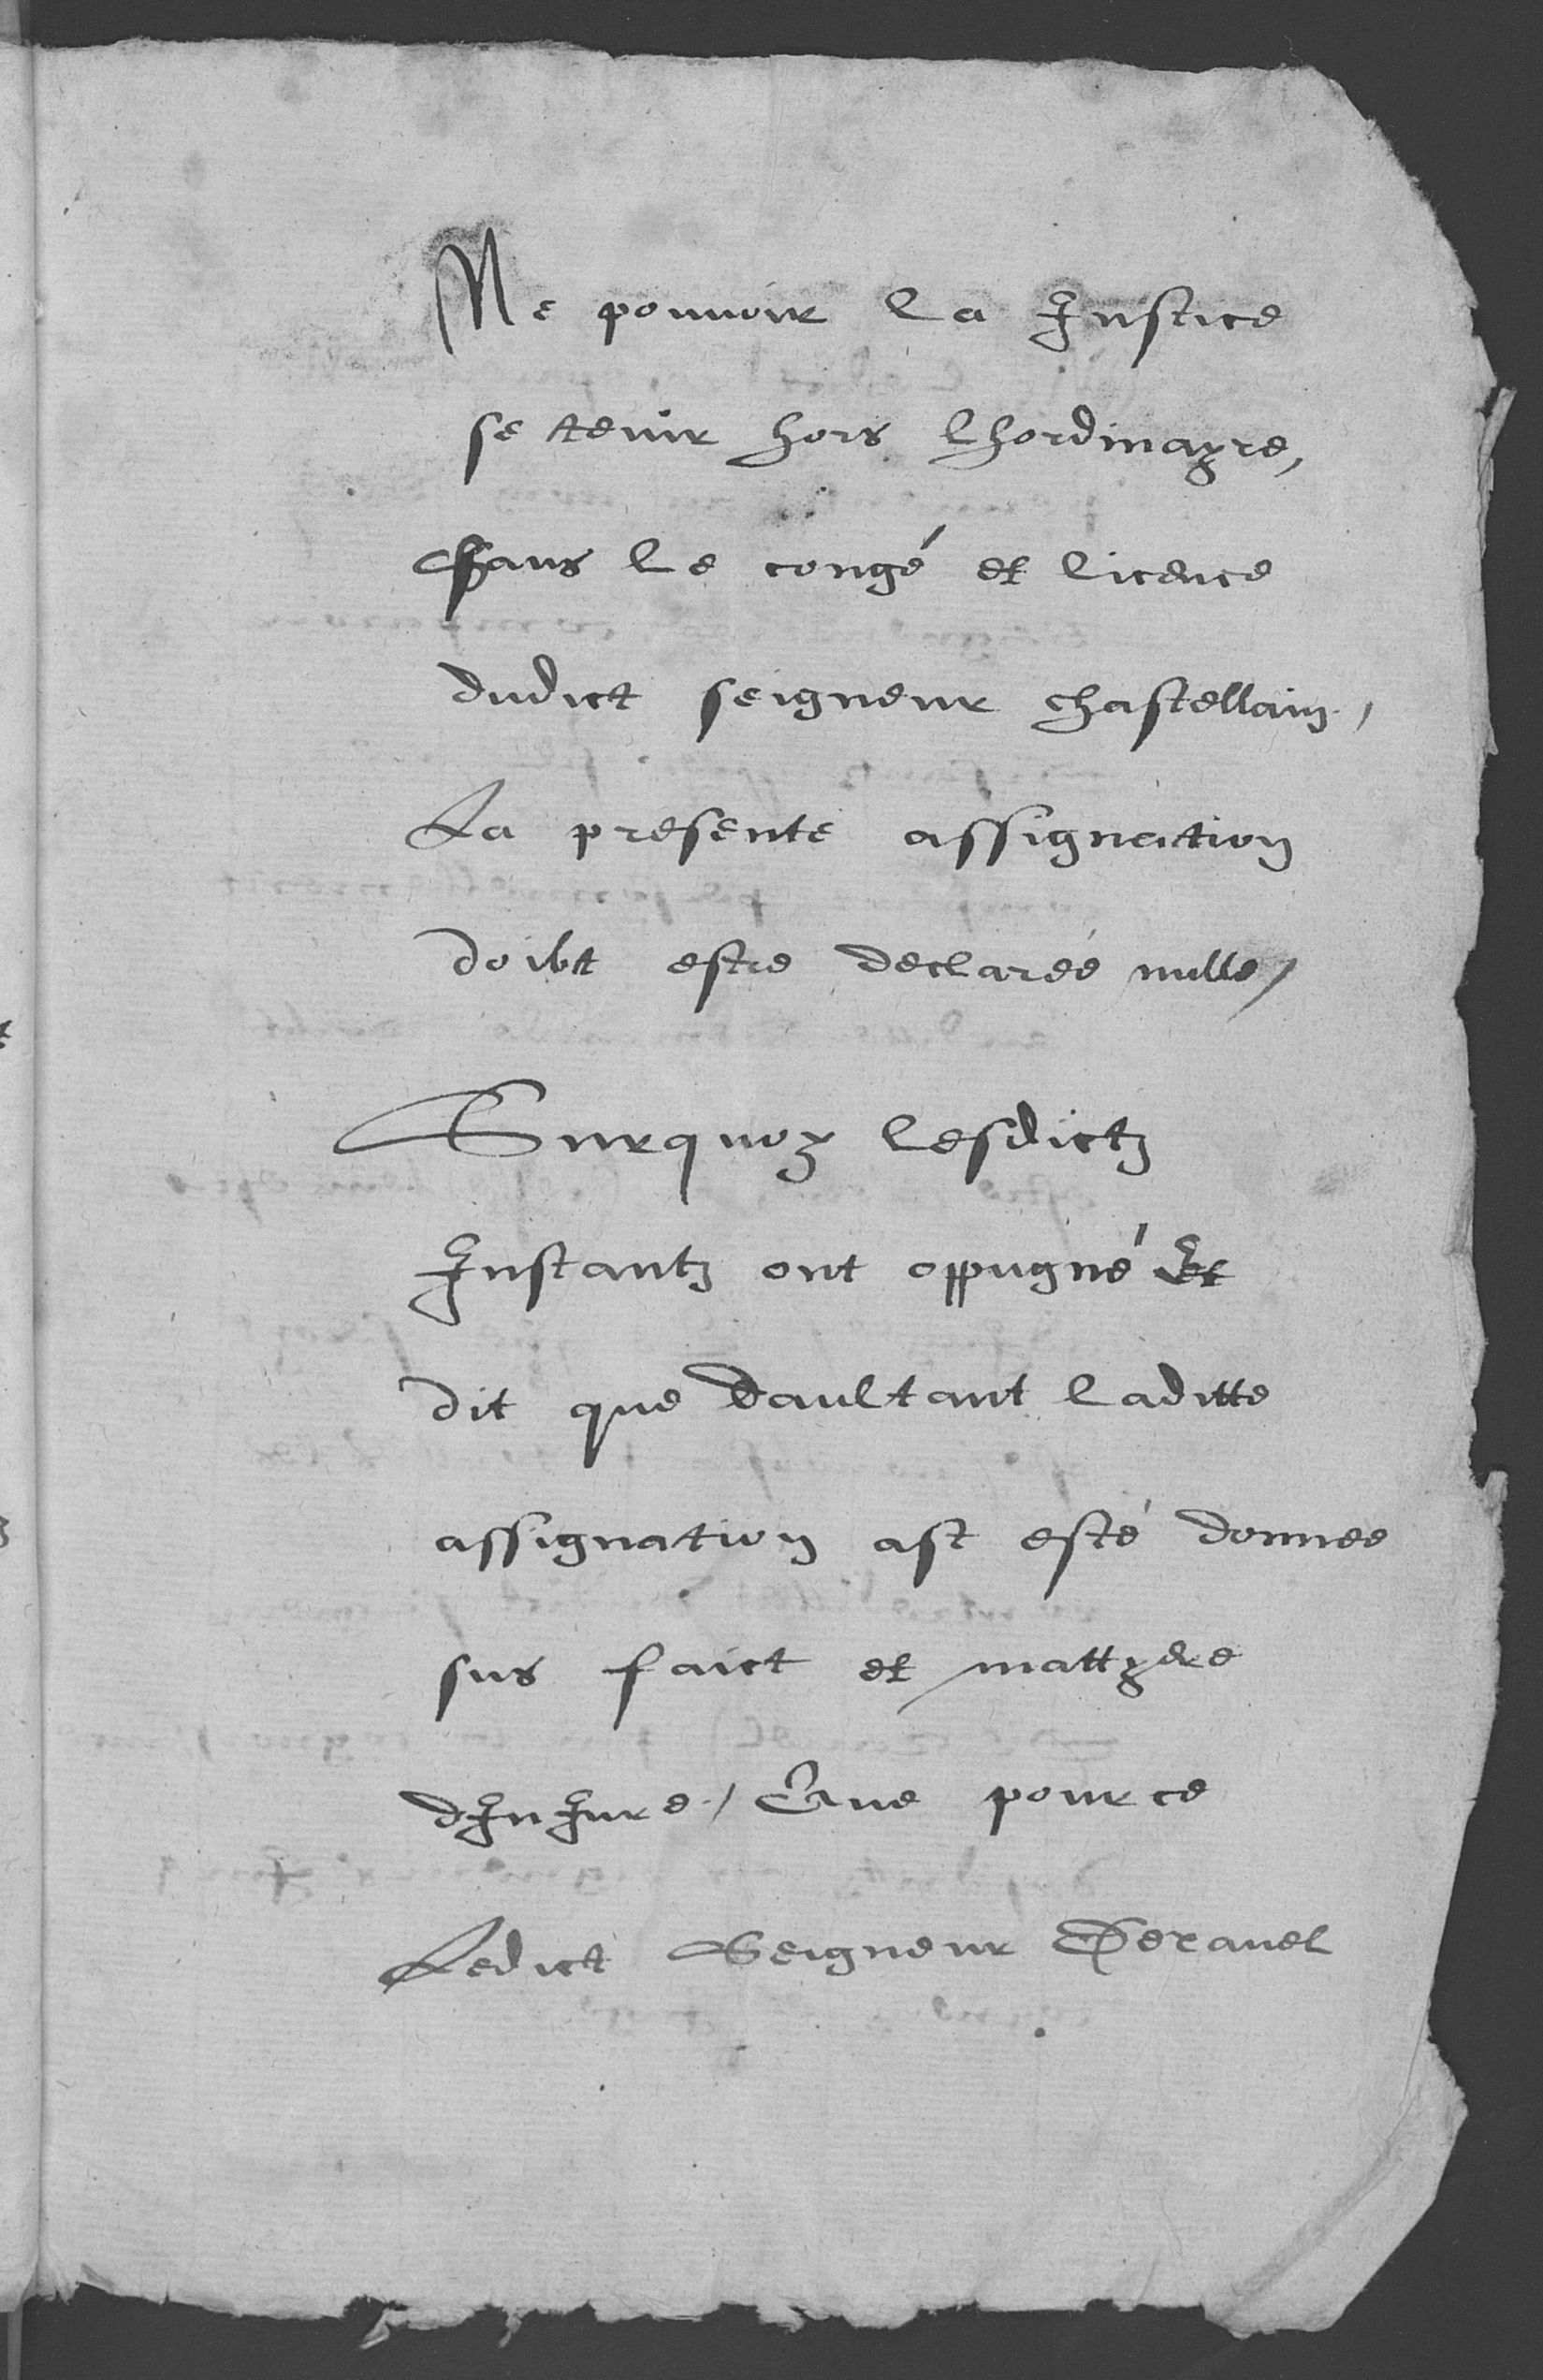 Ne pouvoir la Justice
se tenir hors lhordinayre,
sans le congé et licence
dudict seigneur chastellain,
La presente assignation
doibt estre declarée nulle,
Surquoy lesdictz
Instantz ont oppugné Et
dit que daultant laditte
assignation ast esté donnee
sus faict et mattyere
dInJure, Que pource
Ledict Seigneur